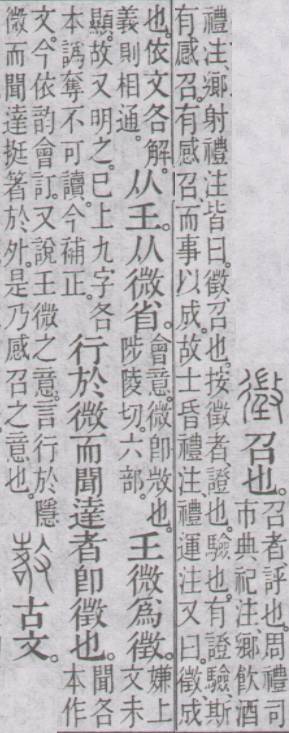 徵
召也。
召者評也。周禮司
市、典祀注、鄉飲酒
禮注、鄉射禮注皆曰。徵、召也。按徵者、證也、驗也。有證驗、斯
有感召。有感召而事以成。故士昏禮注、禮運注又曰。徵、成
也。依文各解。
義則相通。
从王。从微省。
會意。微卽𢼸也。
陟陵切。六部。
王微爲徵。
嫌上
文未
顯。故又明之。已上九字各
本譌奪不可讀。今補正。
行於微而聞達者卽徵也。
聞各
本作
文。今依韵會訂。又說王微之意。言行於隱
微而聞達挺箸於外。是乃感召之意也。
𢾷
古文。